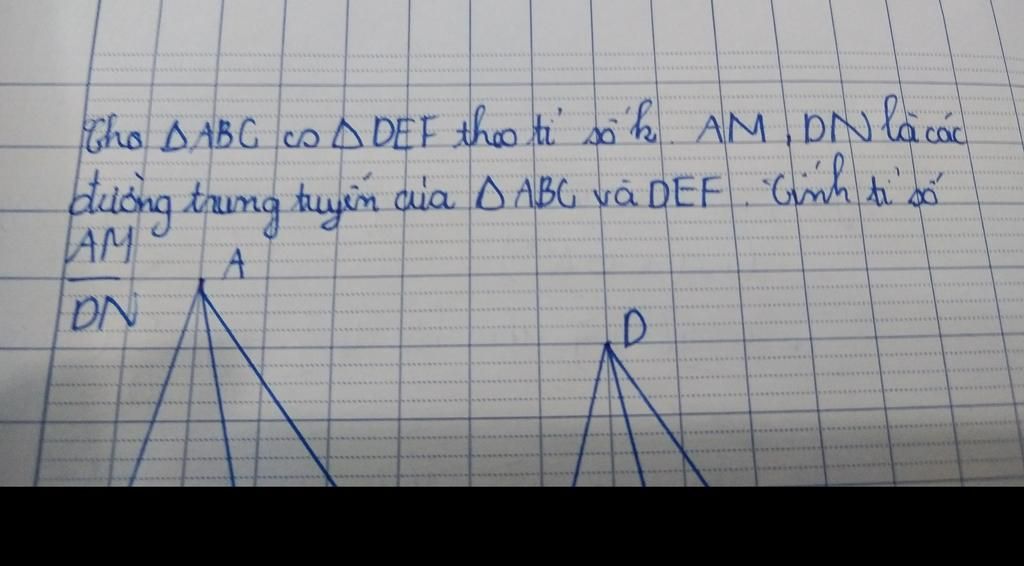 Cho Δ ABC ∽ Δ DEF theo tỉ số k. AM, DN là các
đường trung tuyến của Δ ABC và DEF. Tính tỉ số
AM
DN
A
D